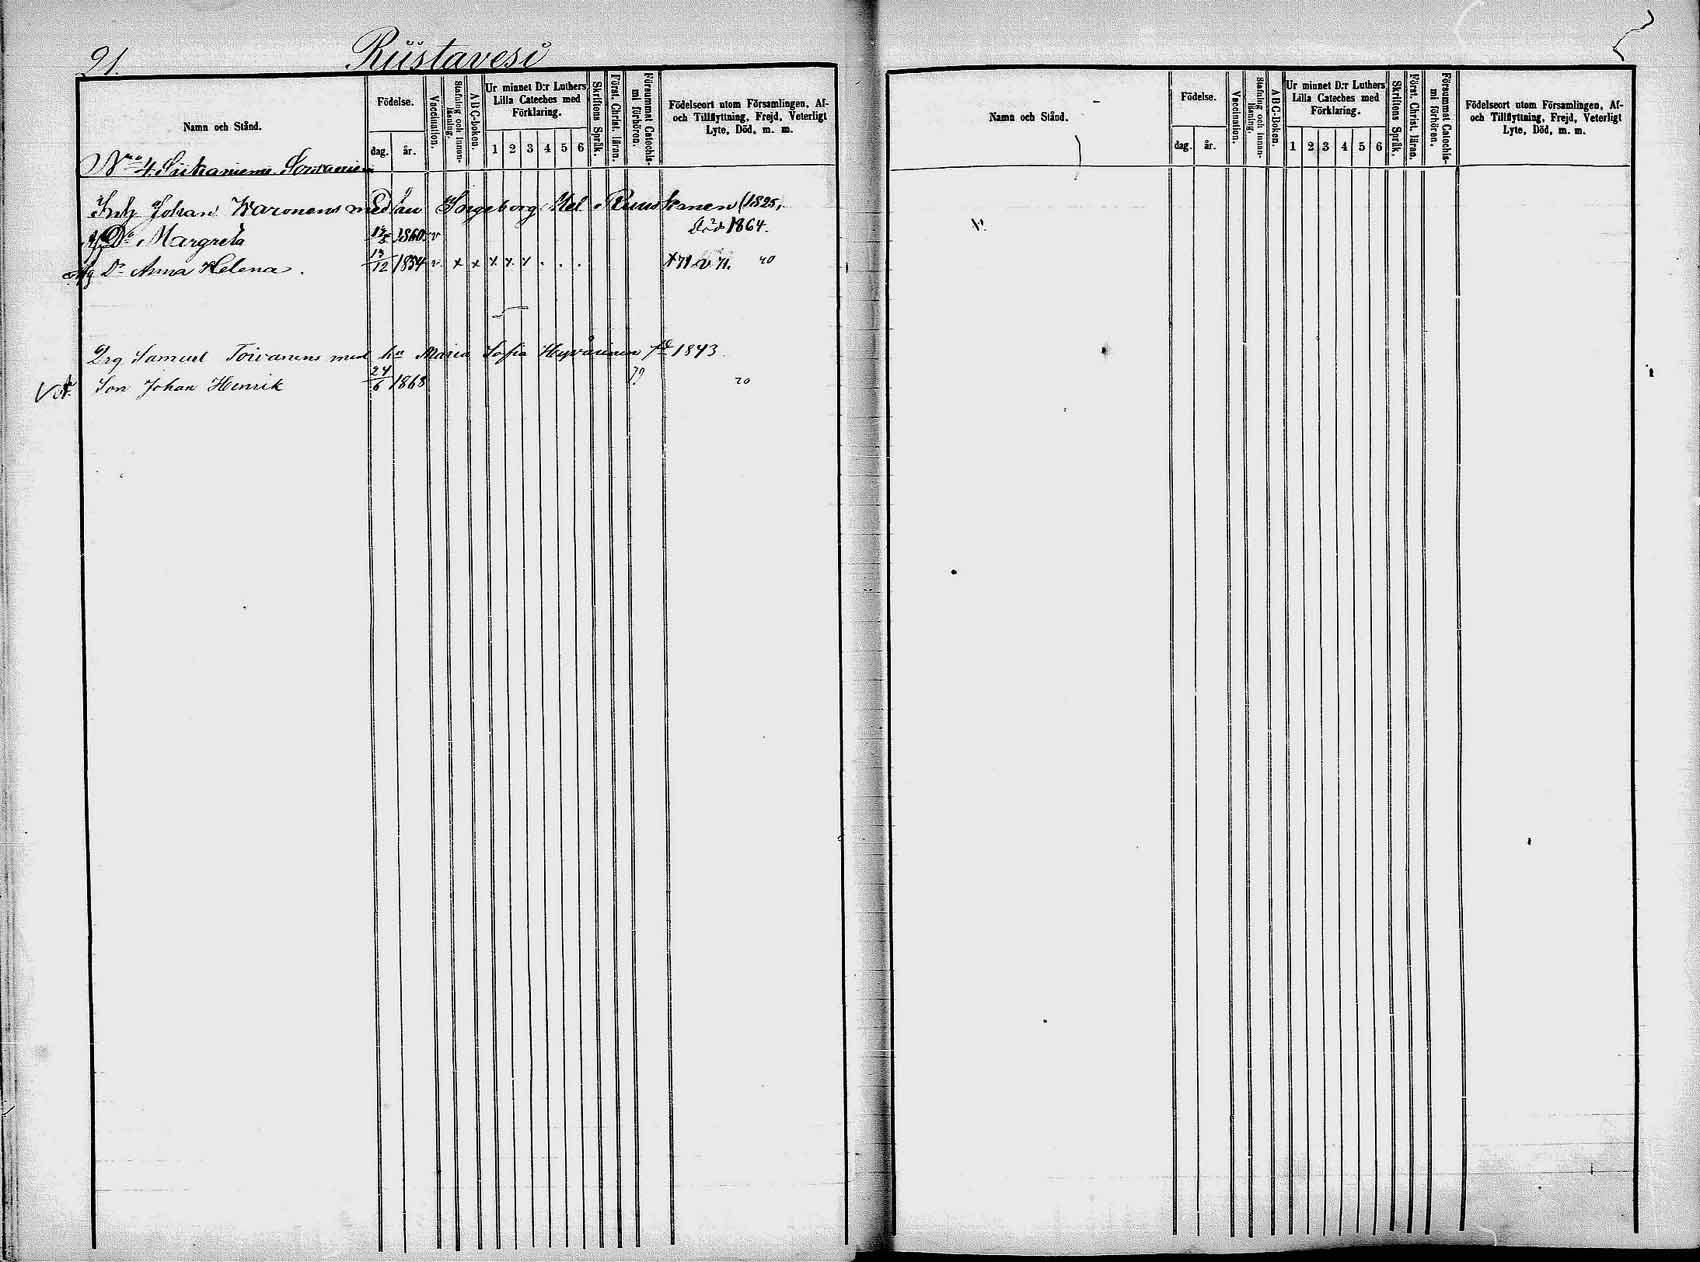 91. Riistavesi
Namn och Stånd. Födelse. dag. år. Vaccination. Stafning och innanläsning. ABC-boken. Ur minnet D:r Luthers Lilla Cateches med Förklaring. 1 2 3 4 5 6 Skriftens Språk. Först. Christ. läran. Försummat Catechismi förhören. Födelseort utom Församlingen, Af- och Tillflyttning, Frejd, Veterligt Lyte, Död, m. m.
N:o 4.
Johan Waronens med Ingeborg Hel. (1825,
D:o Margreta 1860 v Död 1864.
D:r Anna Helena. 13/12 1854 v x x x x x . . . 71 v 71. 20
Samuel Toivanens med hu Maria Sofia Hyvärinen fd 1843
Son Johan Henrik 24/6 1868 79 20
Namn och Stånd. Födelse. dag. år. Vaccination. Stafning och innanläsning. ABC-Boken. Ur minnet D:r Luthers Lilla Cateches med Förklaring. 1 2 3 4 5 6 Skriftens Språk. Först. Christ. läran. Försummat Catechismi förhören. Födelseort utom Församlingen, Af- och Tillflyttning, Frejd, Veterligt Lyte, Död, m. m.